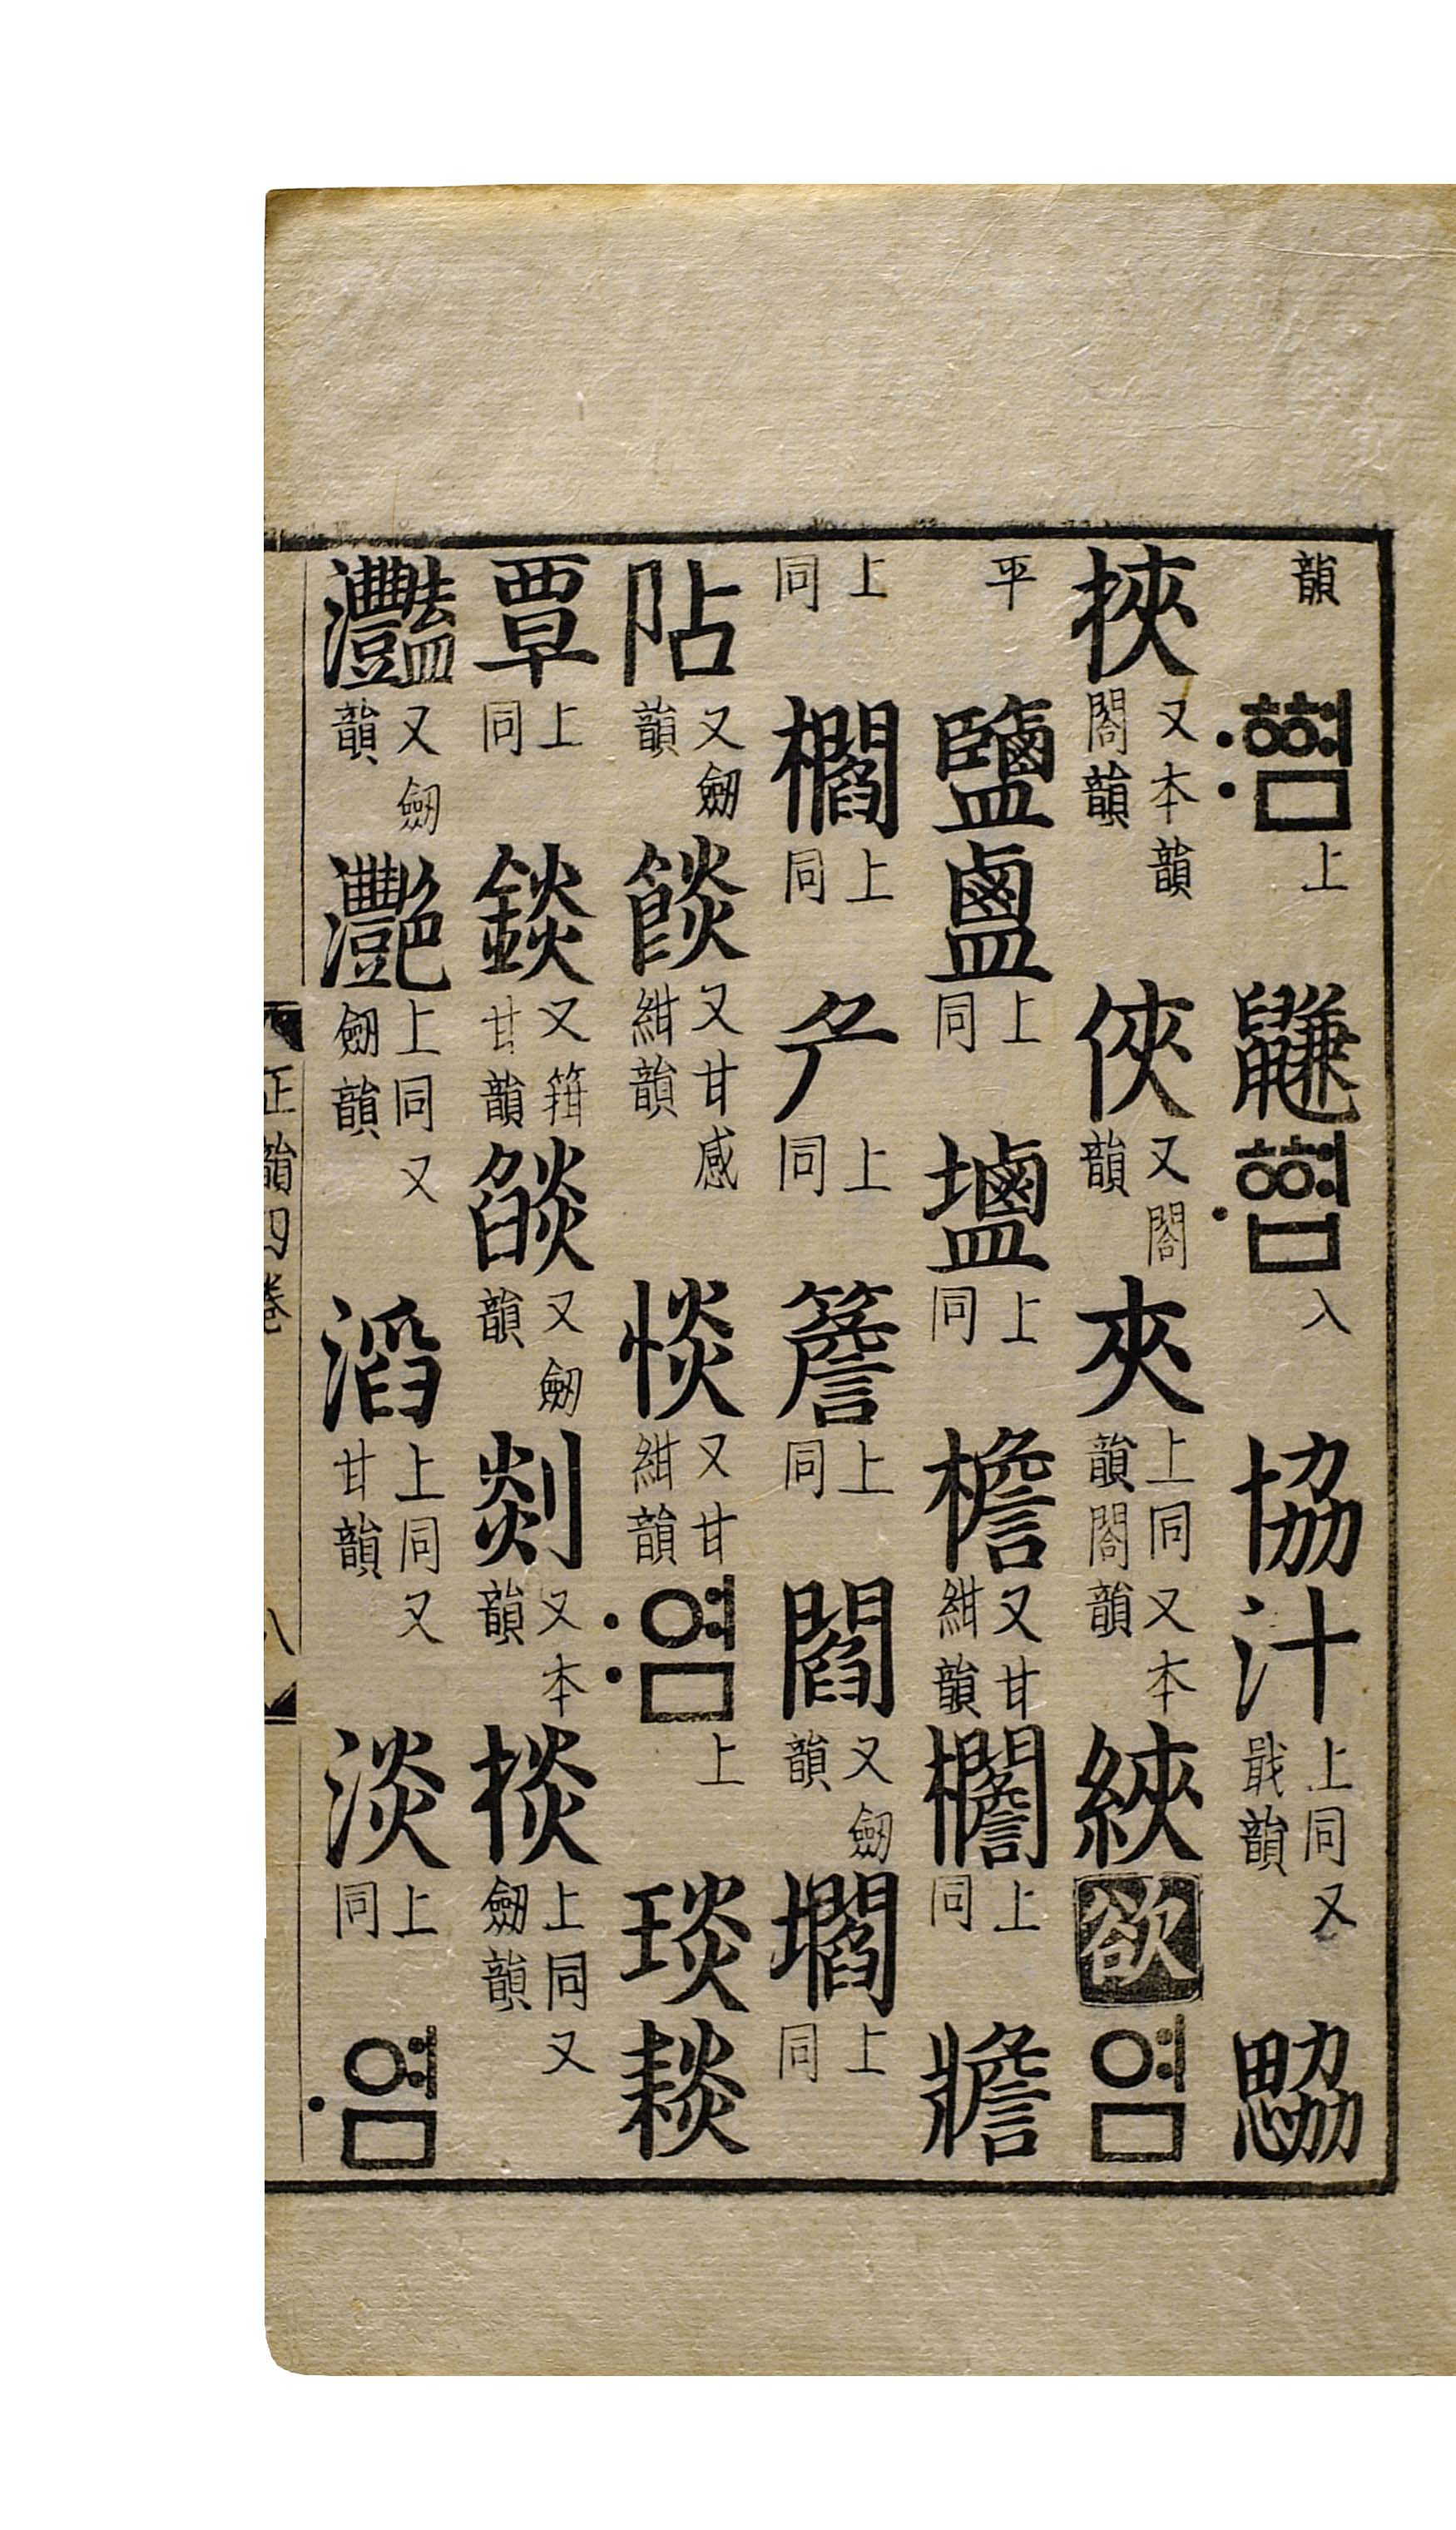 韻 〯ᅘᅧᆷ 上 鼸 〮ᅘᅧᆸ 入 協汁 上同又戢韻 勰
挾 又本韻閤韻 俠 又閤韻 夾 上同又本韻閤韻 綊 欲 염
平 鹽𥂁 上同 壛 上同 檐 又甘紺韻 櫩 上同
上同 櫩 上同 上同 簷 上同 閻 又劒韻 壛 上同
阽 又劒韻 餤 又甘感紺韻 惔 又甘紺韻 〯염 上 琰
覃 上同 錟 又箝甘韻 燄 又劒韻 剡 又本韻 掞 上同又劒韻
灩 又劒韻 灔 上同又劒韻 滔 上同又甘韻 淡 上同 〮염
正韻四卷 八